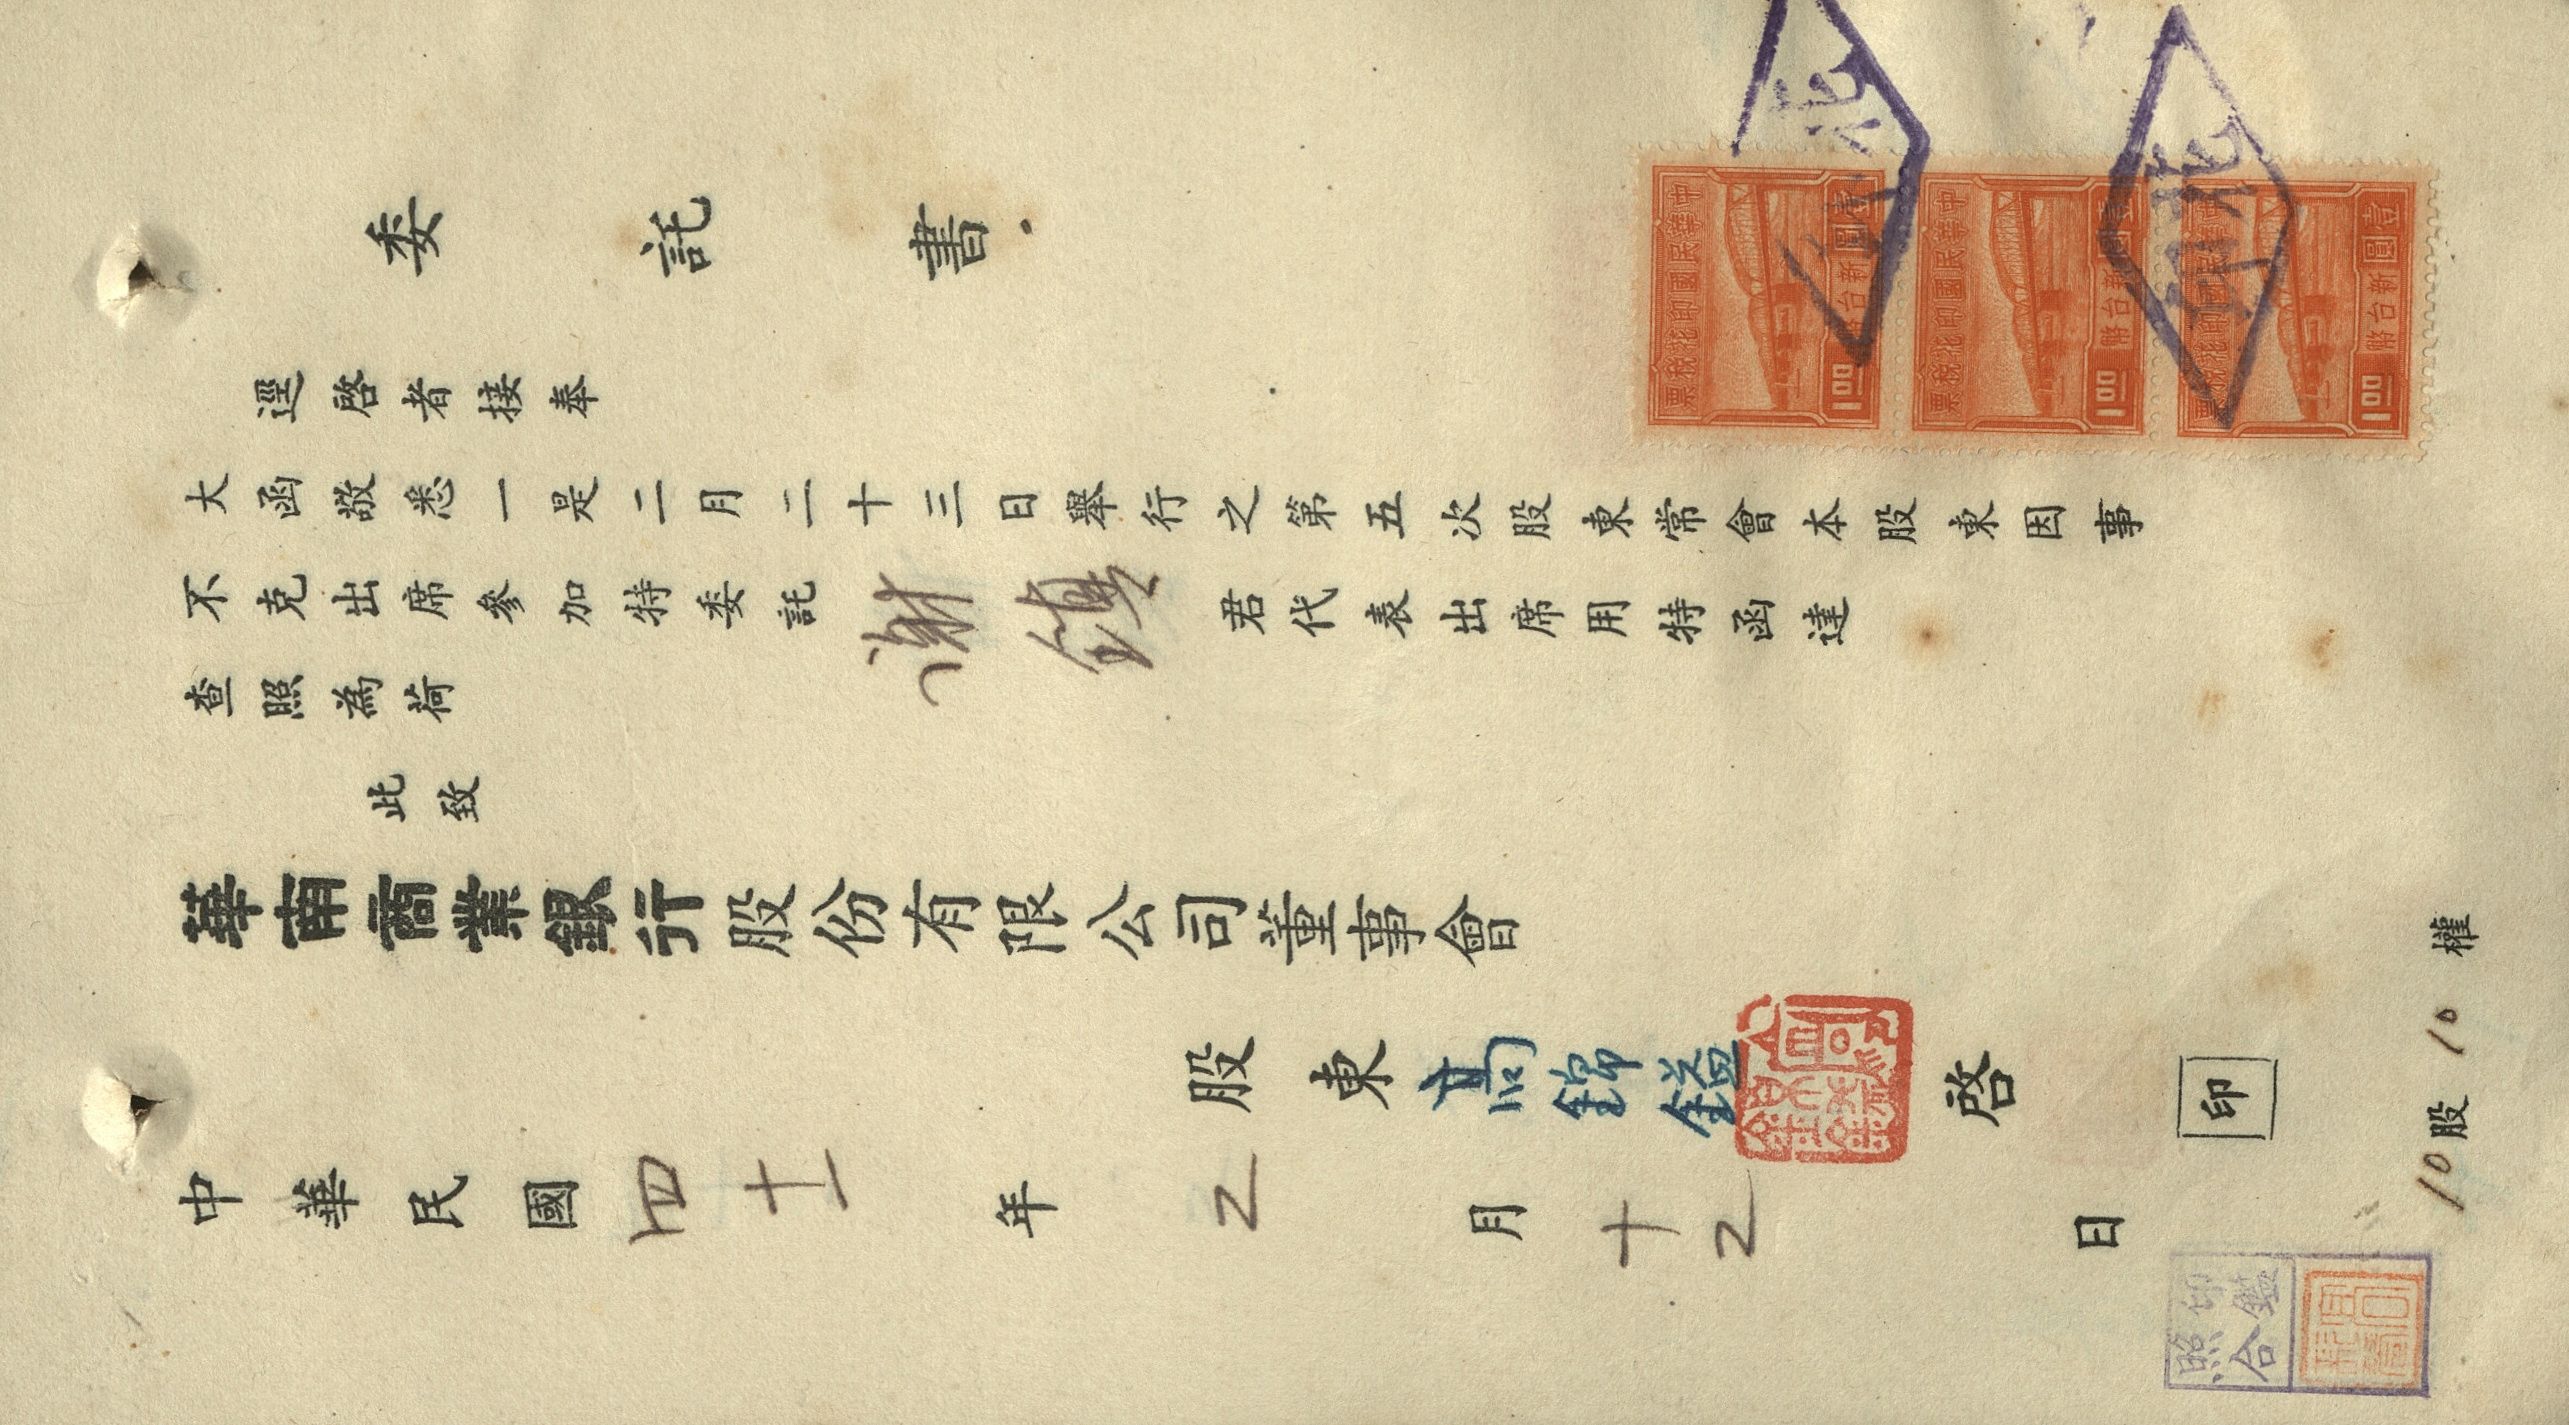 委託書
逕啓者接奉
大函敬悉一是二月二十三日舉行之第五次股東常會本股東因事
不克出席參加特委託謝鎮君代表出席用特函達
查照為荷
此致
華南商業銀行股份有限公司董事會
股東高錦鎰啓
印
10股10權
中華民國四十一年2月十2日
中華民國印花稅票
新台幣壹圓
1.00
中華民國印花稅票
新台幣壹圓
1.00
中華民國印花稅票
新台幣壹圓
1.00
印鑑
照合